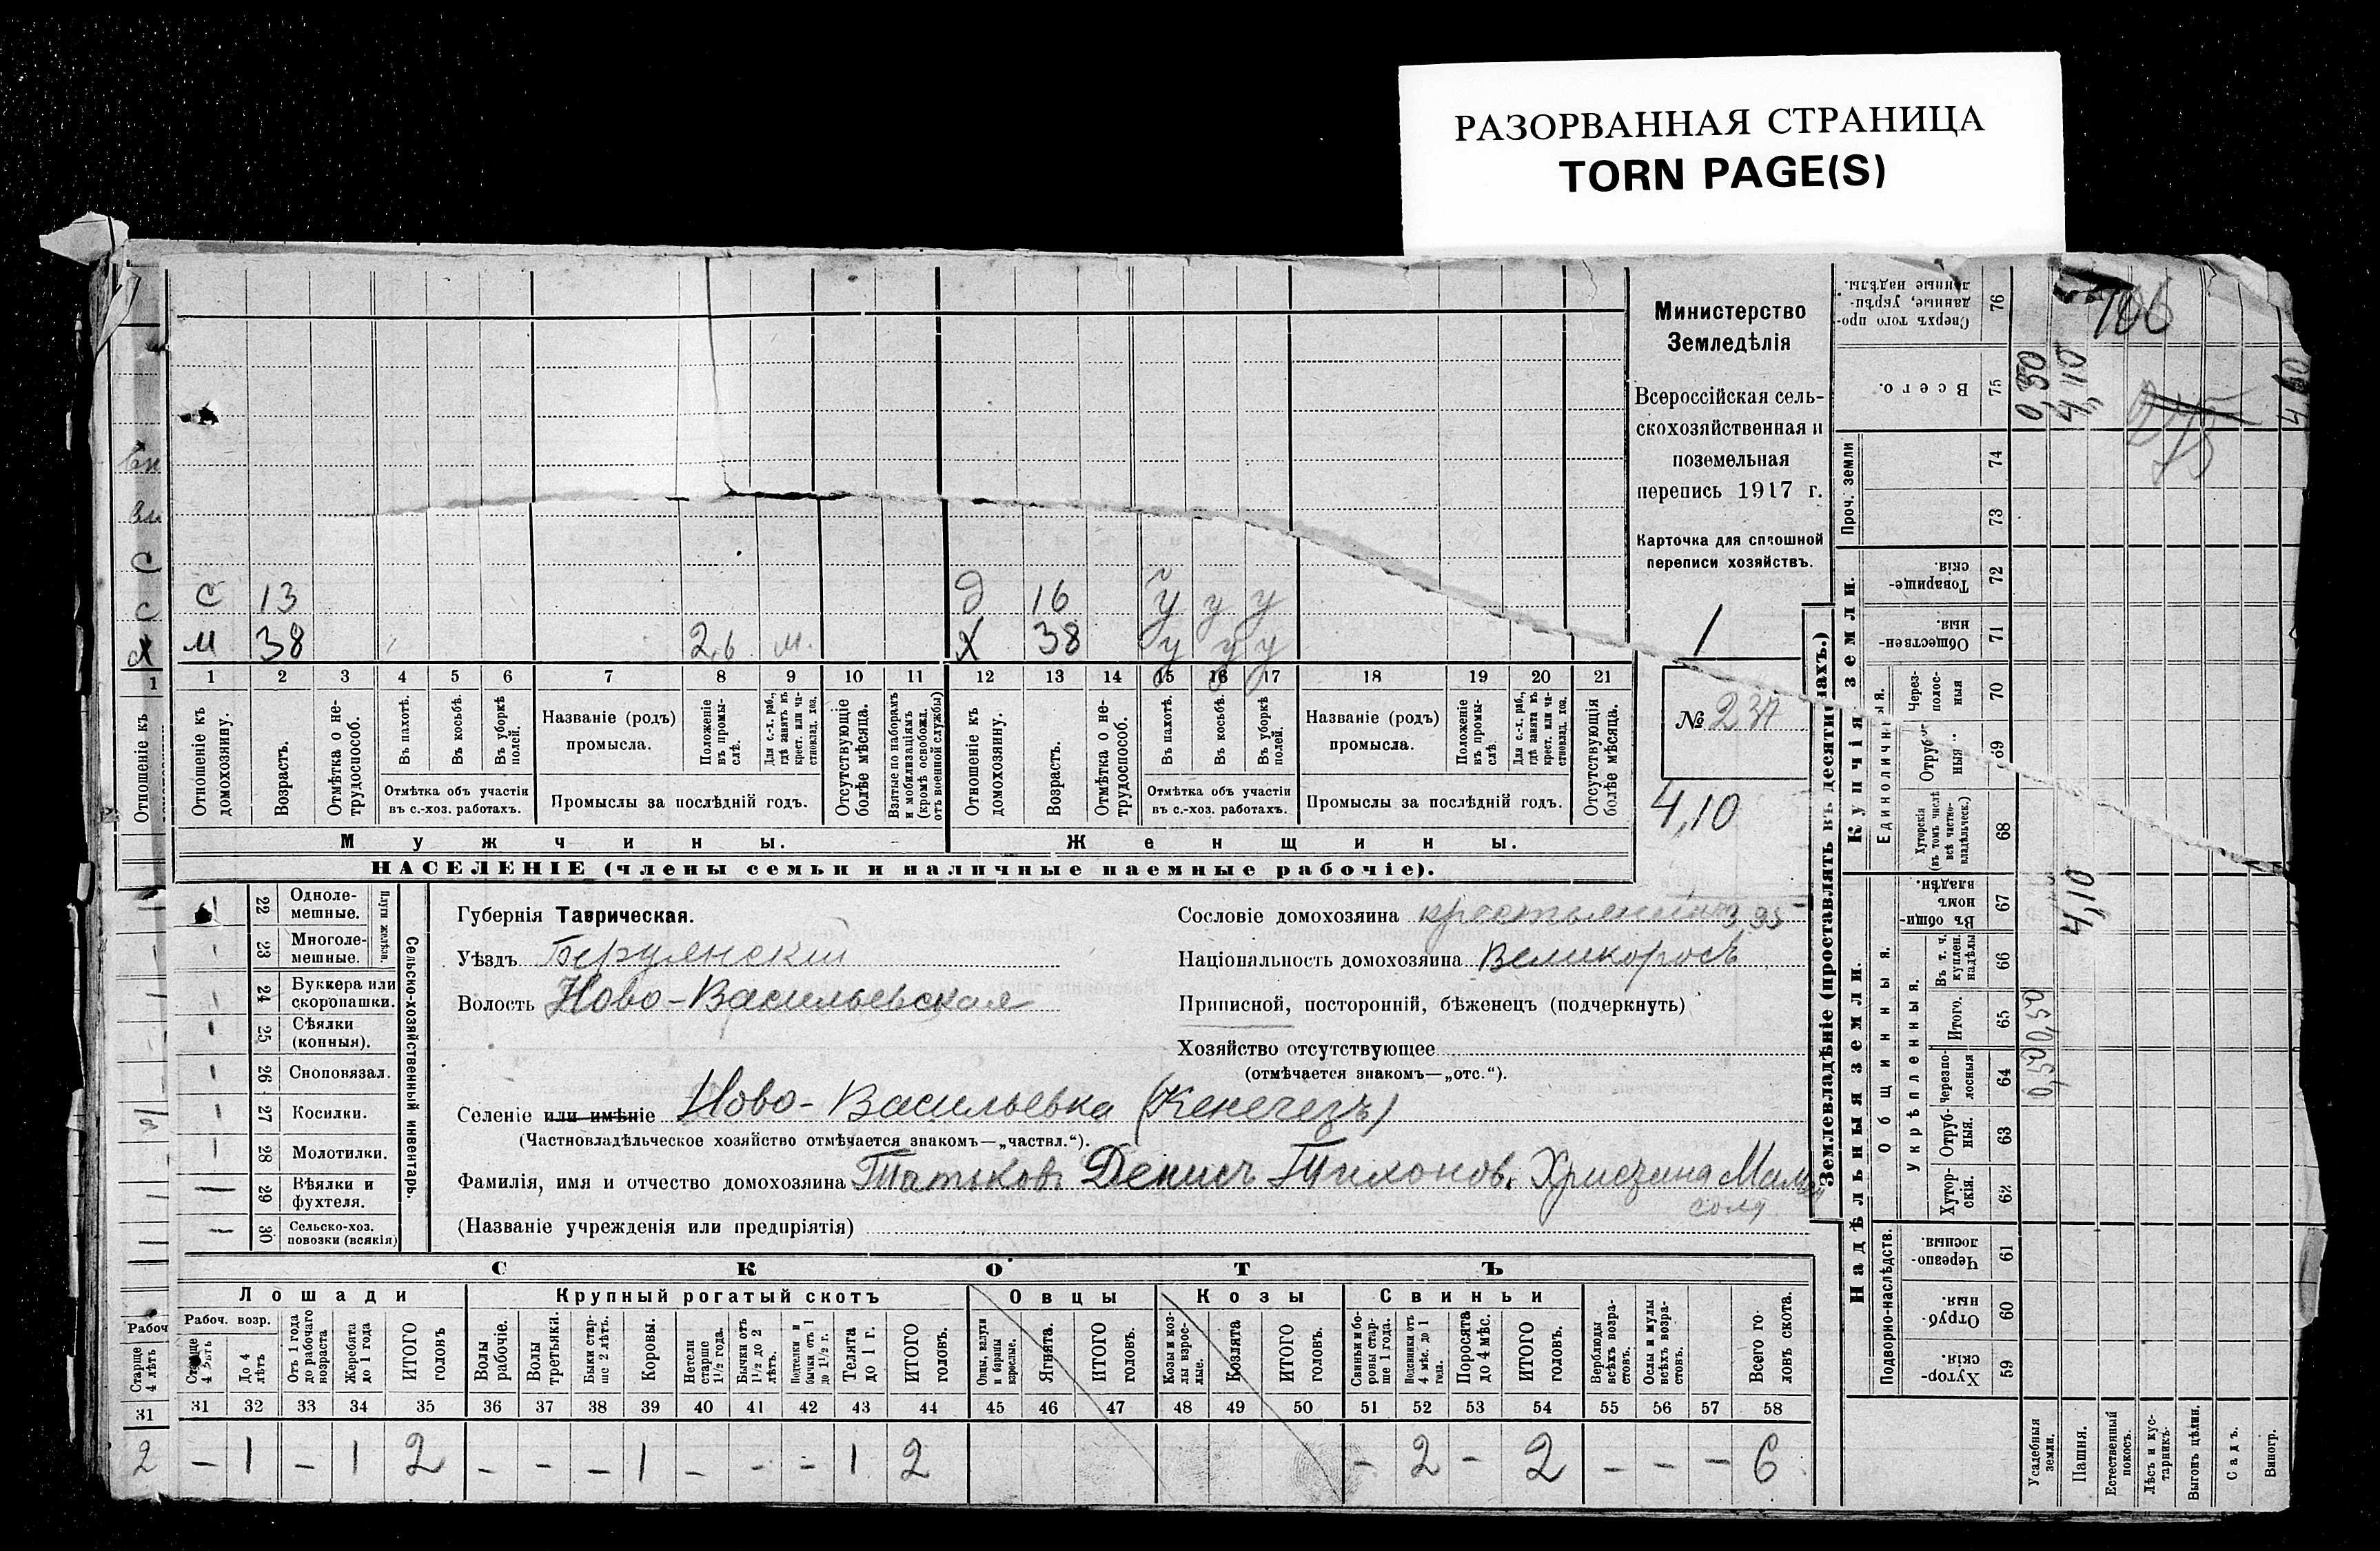 РАЗОРВАННАЯ СТРАНИЦА
TORN PAGE(S)
Министерство
Земледѣлія
Всероссійская сель-
скохозяйственная и
поземельная
перепись 1917 г.
Карточка для сплошной
переписи хозяйствъ.
№ 237
4,10
с 13 д 16 у у у
м 38 2,б м. х 38 у у у
1 2 3 4 5 6 7 8 9 10 11 12 13 14 15 16 17 18 19 20 21
Отношеніе къ домохозяину.
Возрастъ.
Отмѣтка о не-трудоспособ.
Въ пахотѣ.
Въ косьбѣ.
Въ уборкѣ полей.
Отмѣтка объ участіи
въ с.-хоз. работахъ.
Названіе (родъ)
промысла.
Положеніе въ промы-слѣ.
Для с.-х. раб., гдѣ занятъ въ крест. или ча-стновлад. хоз.
Промыслы за послѣдній годъ.
Отсутствующіе болѣе мѣсяца.
Взятые по наборамъ и мобилизаціямъ (кромѣ освобожд. отъ военной службы)
Отношеніе къ домохозяину.
Возрастъ.
Отмѣтка о не-трудоспособ.
Въ пахотѣ.
Въ косьбѣ.
Въ уборкѣ полей.
Отмѣтка объ участіи
въ с.-хоз. работахъ.
Названіе (родъ)
промысла.
Положеніе въ промы-слѣ.
Для с.-х. раб., гдѣ занята въ крест. или ча-стновлад. хоз.
Промыслы за послѣдній годъ.
Отсутствующія болѣе мѣсяца.
Мужчины. Женщины.
НАСЕЛЕНІЕ (члены семьи и наличные наемные рабочіе).
Сельско-хозяйственный инвентарь.
Плуги желѣзн.
22 Одноле-мешные.
23 Многоле-мешные.
24 Буккера или скоропашки.
25 Сѣялки (конныя).
26 Сноповязал.
27 Косилки.
28 Молотилки.
29 Вѣялки и фухтеля.
30 Сельско-хоз. повозки (всякія)
Губернія Таврическая.
Уѣздъ Бердянскій
Волость Ново-Васильевская
Селеніе или имѣніе Ново-Васильевка (Кенегезъ)
(Частновладѣльческое хозяйство отмѣчается знакомъ—„частвл.“).
Фамилія, имя и отчество домохозяина Татьковъ Денисъ Тихонов.
(Названіе учрежденія или предпріятія)
Сословіе домохозяина крестьянинъ 3,95
Національность домохозяина Великоросъ
Приписной, посторонній, бѣженецъ (подчеркнуть)
Хозяйство отсутствующее
(отмѣчается знакомъ—„отс.“).
СКОТЪ
Лошади Крупный рогатый скотъ Овцы Козы Свиньи
Рабоч. возр.
Старше 4 лѣтъ
До 4 лѣтъ
Отъ 1 года до рабочаго возраста
Жеребята до 1 года
ИТОГО головъ
Волы рабочіе.
Волы третьяки.
Быки стар-ше 2 лѣтъ.
Коровы.
Нетели старше 1½ года.
Бычки отъ 1½ до 2 лѣтъ.
Подтелки и бычки отъ 1 до 1½ г.
Телята до 1 г.
ИТОГО головъ.
Овцы, валухи и бараны взрослые.
Ягнята.
ИТОГО головъ.
Козы и коз-лы взрос-лые.
Козлята
ИТОГО головъ.
Свиньи и бо-ровы стар-ше 1 года.
Подсвинки отъ 4 мѣс. до 1 года.
Поросята до 4 мѣс.
ИТОГО головъ.
Верблюды всѣхъ возра-стовъ.
Ослы и мулы всѣхъ возра-стовъ.
Всего го-ловъ скота.
31 32 33 34 35 36 37 38 39 40 41 42 43 44 45 46 47 48 49 50 51 52 53 54 55 56 57 58
– 1 – 1 2 – – – 1 – – – 1 2 – 2 – 2 – – – 6
Отношеніе къ
1
Рабоч
Старше 4 лѣтъ
31
2
Землевладѣніе (проставлять въ десятинахъ.)
Надѣльныя земли. Купчія земли. Проч. земли
Подворно-наслѣдств. Общинныя. Укрѣпленныя. Единоличныя.
59 Хутор-скія.
60 Отруб-ныя.
61 Черезпо-лосныя.
62 Хутор-скія.
63 Отруб-ныя.
64 черезпо-лосныя
65 Итого.
66 Въ т. ч. куплен. надѣлы
67 Въ общин-номъ владѣн.
68 Хуторскія (въ томъ числѣ всѣ частно-владѣльческ.)
69
70 Через-полос-ныя
71 Обществен-ныя.
72 Товарище-скія.
73
74
75 Всего.
76 Сверхъ того про-данные, укрѣп-ленные надѣлы.
Усадебныя земли. 0,50 0,50 0,50
Пашня. 4,10 4,10
Естественный покосъ.
Лѣсъ и кус-тарникъ.
Выгонъ цѣлин.
Садъ.
Виногр.
106